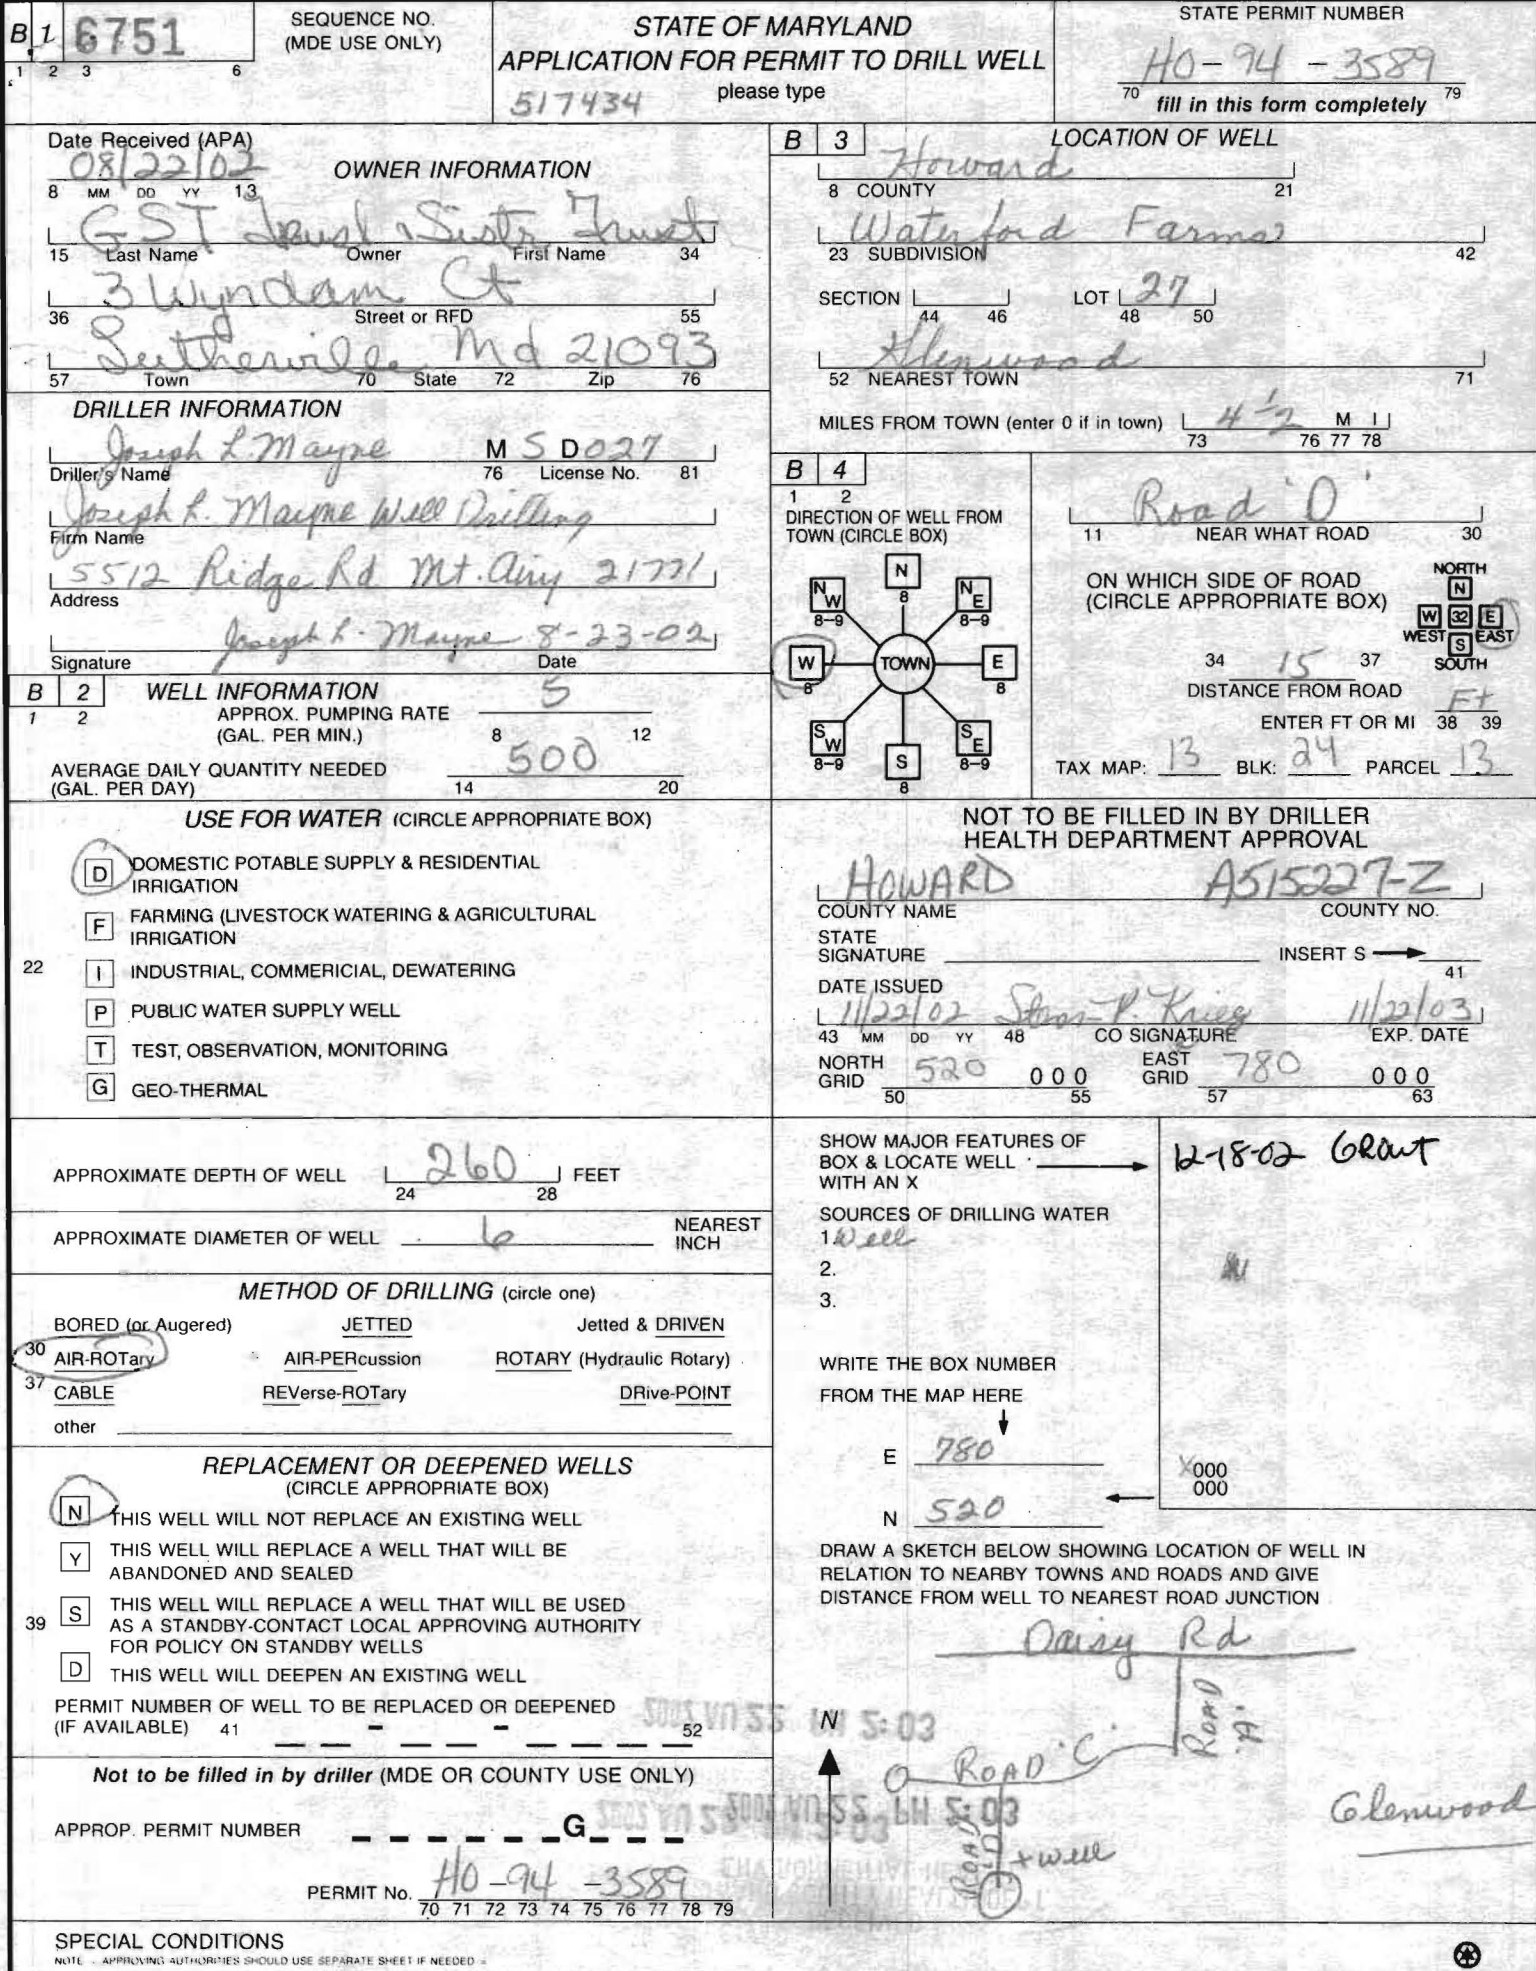 B 1 6751
1 2 3 6
SEQUENCE NO.
(MDE USE ONLY)
STATE OF MARYLAND
APPLICATION FOR PERMIT TO DRILL WELL
please type
517434
STATE PERMIT NUMBER
HO-94-3589
70 79
fill in this form completely
Date Received (APA)
08/22/02
8 MM DD YY 13
OWNER INFORMATION
GST Trust
15 Last Name Owner First Name 34
3 Wyndam Ct
36 Street or RFD 55
Lutherville Md 21093
57 Town 70 State 72 Zip 76
DRILLER INFORMATION
Joseph L. Mayne M S D 027
Driller's Name 76 License No. 81
Joseph L. Mayne Well Drilling
Firm Name
5512 Ridge Rd Mt. Airy 21771
Address
Joseph L. Mayne 8-23-02
Signature Date
B 2 WELL INFORMATION
1 2
APPROX. PUMPING RATE
(GAL. PER MIN.) 5
8 12
AVERAGE DAILY QUANTITY NEEDED
(GAL. PER DAY) 500
14 20
USE FOR WATER (CIRCLE APPROPRIATE BOX)
D DOMESTIC POTABLE SUPPLY & RESIDENTIAL
IRRIGATION
F FARMING (LIVESTOCK WATERING & AGRICULTURAL
IRRIGATION
22
I INDUSTRIAL, COMMERICIAL, DEWATERING
P PUBLIC WATER SUPPLY WELL
T TEST, OBSERVATION, MONITORING
G GEO-THERMAL
APPROXIMATE DEPTH OF WELL 260 FEET
24 28
APPROXIMATE DIAMETER OF WELL 6 NEAREST
INCH
METHOD OF DRILLING (circle one)
BORED (or Augered) JETTED Jetted & DRIVEN
30 AIR-ROTary AIR-PERcussion ROTARY (Hydraulic Rotary)
37 CABLE REVerse-ROTary DRive-POINT
other
REPLACEMENT OR DEEPENED WELLS
(CIRCLE APPROPRIATE BOX)
N THIS WELL WILL NOT REPLACE AN EXISTING WELL
Y THIS WELL WILL REPLACE A WELL THAT WILL BE
ABANDONED AND SEALED
39 S THIS WELL WILL REPLACE A WELL THAT WILL BE USED
AS A STANDBY-CONTACT LOCAL APPROVING AUTHORITY
FOR POLICY ON STANDBY WELLS
D THIS WELL WILL DEEPEN AN EXISTING WELL
PERMIT NUMBER OF WELL TO BE REPLACED OR DEEPENED
(IF AVAILABLE) 41 - - 52
Not to be filled in by driller (MDE OR COUNTY USE ONLY)
APPROP. PERMIT NUMBER G
PERMIT No. HO-94-3589
70 71 72 73 74 75 76 77 78 79
SPECIAL CONDITIONS
NOTE - APPROVING AUTHORITIES SHOULD USE SEPARATE SHEET IF NEEDED
B 3 LOCATION OF WELL
Howard
8 COUNTY 21
Waterford Farms
23 SUBDIVISION 42
SECTION LOT 27
44 46 48 50
Glenwood
52 NEAREST TOWN 71
MILES FROM TOWN (enter 0 if in town) 4 1/2 M I
73 76 77 78
B 4
1 2
DIRECTION OF WELL FROM
TOWN (CIRCLE BOX)
N
8
NW NE
8-9 8-9
W TOWN E
8 8
SW SE
8-9 8-9
S
8
Road 'D'
11 NEAR WHAT ROAD 30
ON WHICH SIDE OF ROAD
(CIRCLE APPROPRIATE BOX)
NORTH
N
W 32 E
WEST EAST
S
SOUTH
34 15 37
DISTANCE FROM ROAD
Ft
ENTER FT OR MI 38 39
TAX MAP: 13 BLK: 24 PARCEL 13
NOT TO BE FILLED IN BY DRILLER
HEALTH DEPARTMENT APPROVAL
HOWARD A515227-Z
COUNTY NAME COUNTY NO.
STATE
SIGNATURE INSERT S
41
DATE ISSUED
11/22/02 P. Krieg 11/22/03
43 MM DD YY 48 CO SIGNATURE EXP. DATE
NORTH
GRID 520 000
50 55
EAST
GRID 780 000
57 63
SHOW MAJOR FEATURES OF
BOX & LOCATE WELL
WITH AN X
12-18-02 GROUT
SOURCES OF DRILLING WATER
1. Well
2.
3.
WRITE THE BOX NUMBER
FROM THE MAP HERE
E 780
N 520
X000
000
DRAW A SKETCH BELOW SHOWING LOCATION OF WELL IN
RELATION TO NEARBY TOWNS AND ROADS AND GIVE
DISTANCE FROM WELL TO NEAREST ROAD JUNCTION
Daisy Rd
ROAD 'A'
N
ROAD 'C'
ROAD 'D'
+ well
Glenwood